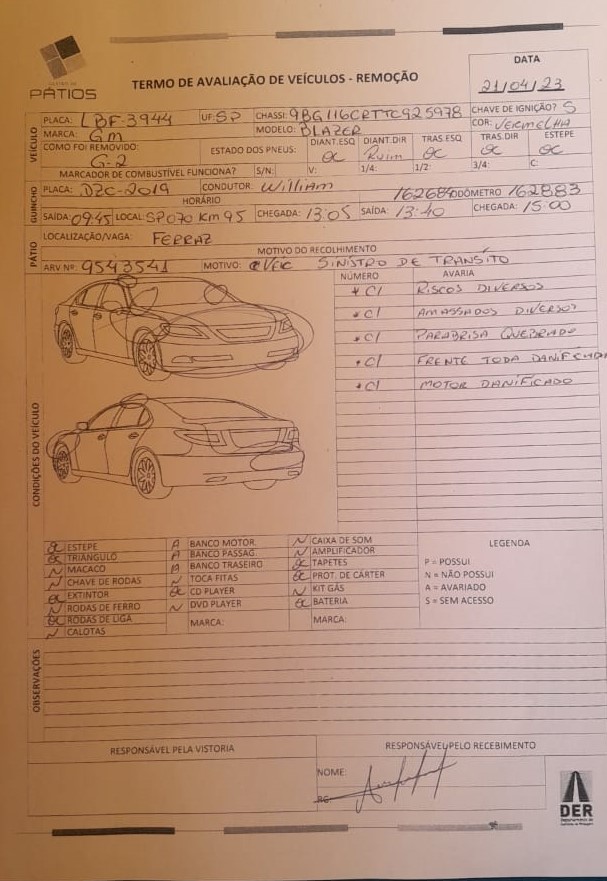 PÁTIOS
TERMO DE AVALIAÇÃO DE VEÍCULOS - REMOÇÃO
DATA
21/04/23
VEÍCULO
PLACA: LBF-3944 UF: SP CHASSI: 9BG116CRTTC925978 CHAVE DE IGNIÇÃO? S
MARCA: GM MODELO: BLAZER COR: VERMELHA
COMO FOI REMOVIDO: G-2 ESTADO DOS PNEUS: DIANT.ESQ OK DIANT.DIR Ruim TRAS.ESQ OK TRAS.DIR OK ESTEPE OK
MARCADOR DE COMBUSTÍVEL FUNCIONA? S/N: V: 1/4: 1/2: 3/4: C:
GUINCHO
PLACA: DZC-2019 CONDUTOR: William 162684 ODÔMETRO 162883
HORÁRIO
SAÍDA: 09:45 LOCAL: SP070 Km 95 CHEGADA: 13:05 SAÍDA: 13:40 CHEGADA: 15:00
PÁTIO
LOCALIZAÇÃO/VAGA: FERRAZ
MOTIVO DO RECOLHIMENTO
ARV Nº: 9543541 MOTIVO: VEIC SINISTRO DE TRÂNSITO
CONDIÇÕES DO VEÍCULO
NÚMERO AVARIA
* C/ RISCOS DIVERSOS
* C/ AMASSADOS DIVERSOS
* C/ PARABRISA QUEBRADO
* C/ FRENTE TODA DANIFICADA
* C/ MOTOR DANIFICADO
OK ESTEPE A BANCO MOTOR. N CAIXA DE SOM
OK TRIÂNGULO A BANCO PASSAG. N AMPLIFICADOR
N MACACO A BANCO TRASEIRO OK TAPETES
N CHAVE DE RODAS N TOCA FITAS OK PROT. DE CÁRTER
OK EXTINTOR OK CD PLAYER N KIT GÁS
N RODAS DE FERRO N DVD PLAYER OK BATERIA
OK RODAS DE LIGA MARCA: MARCA:
N CALOTAS
LEGENDA
P = POSSUI
N = NÃO POSSUI
A = AVARIADO
S = SEM ACESSO
OBSERVAÇÕES
RESPONSÁVEL PELA VISTORIA RESPONSÁVEL PELO RECEBIMENTO
NOME:
RG:
DER